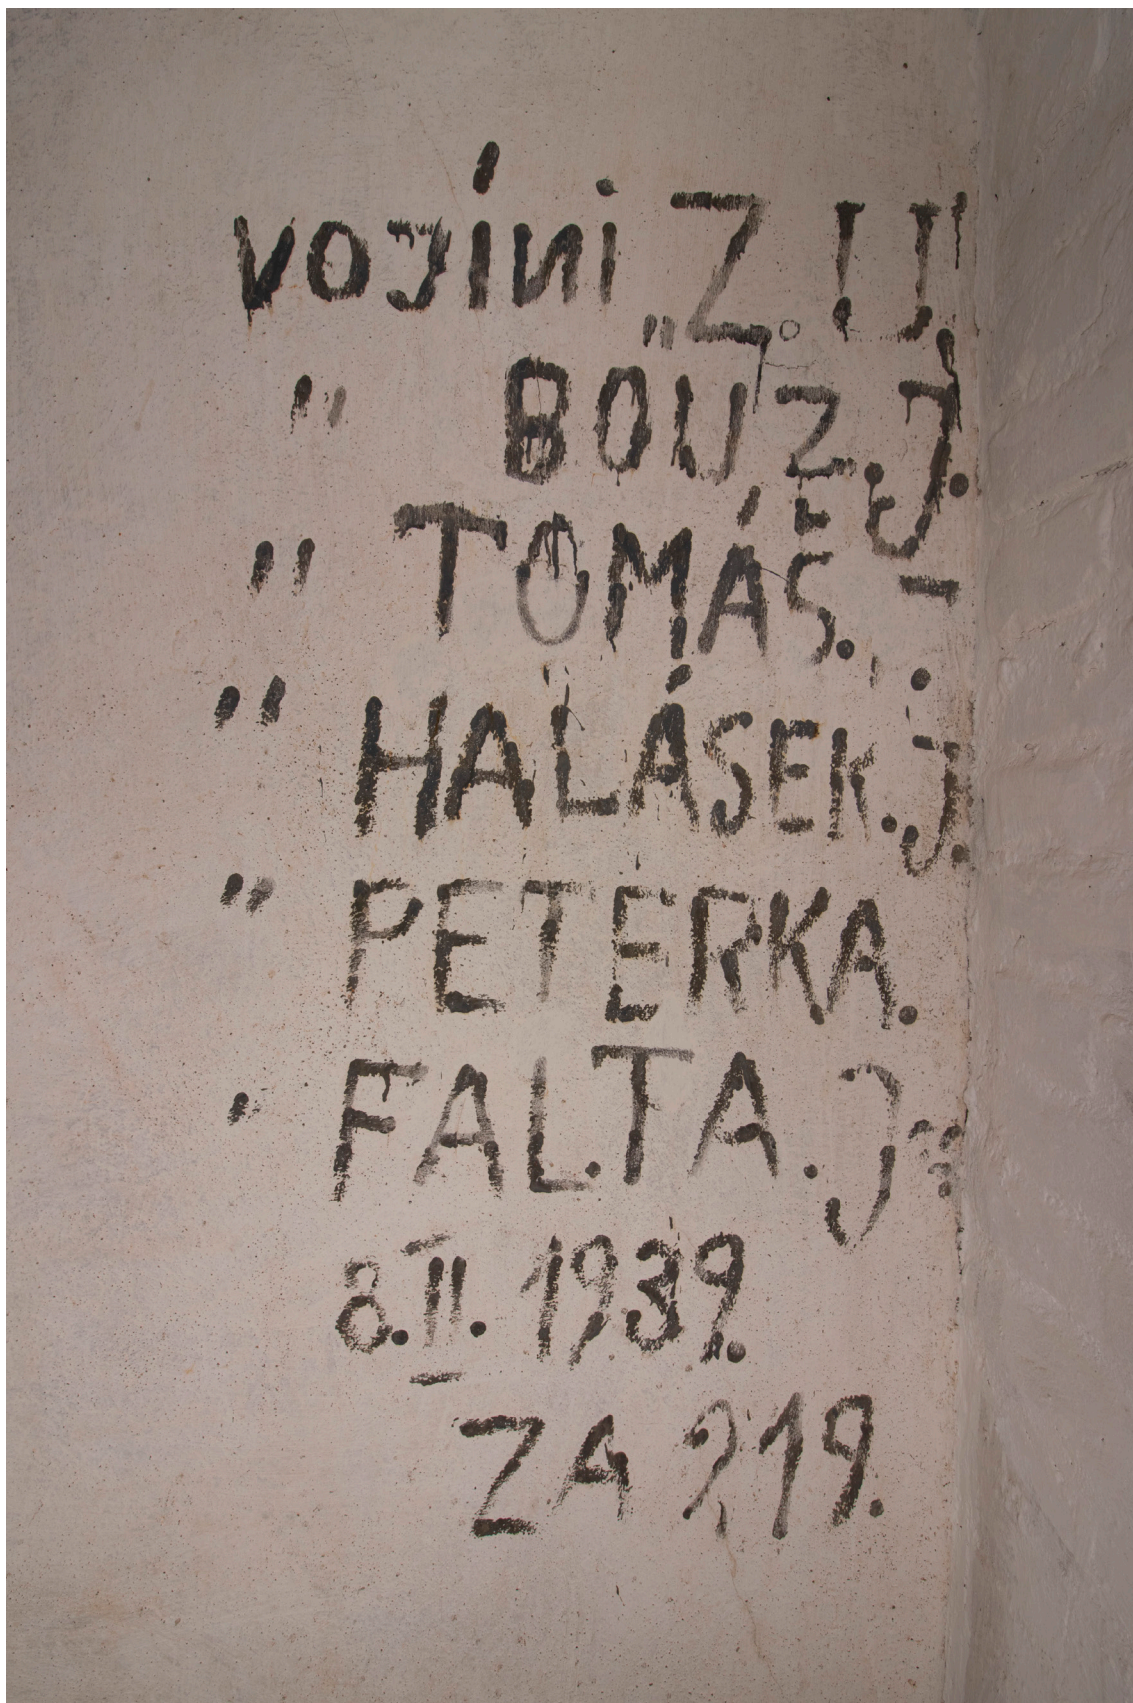 vojíni „Z. I J.
" BOUZ. J.
" TOMÁŠ.
" HALÁSEK. J.
" PETERKA.
" FALTA. J
8. II. 1939.
ZA 919.